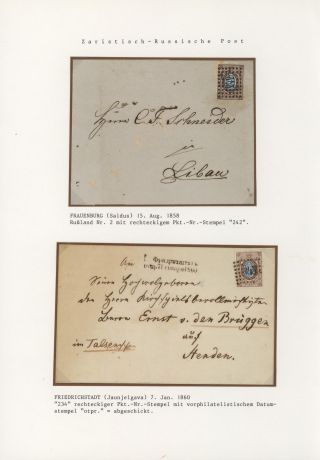 Zaristisch-Russische Post
Herrn C. F. Schneider
in
Libau
FRAUENBURG (Saldus) 15. Aug. 1858
Rußland Nr. 2 mit rechteckigem Pkt.-Nr.-Stempel "242".
An
Seine Hochwolgeboren
den Herrn Kirchspielsbevollmächtigten
Herrn Ernst v. den Brüggen
auf
im Talsenschen
Stenden.
FRIEDRICHSTADT (Jaunjelgava) 7. Jan. 1860
"234" rechteckiger Pkt.-Nr.-Stempel mit vorphilatelistischem Datum-
stempel "otpr." = abgeschickt.